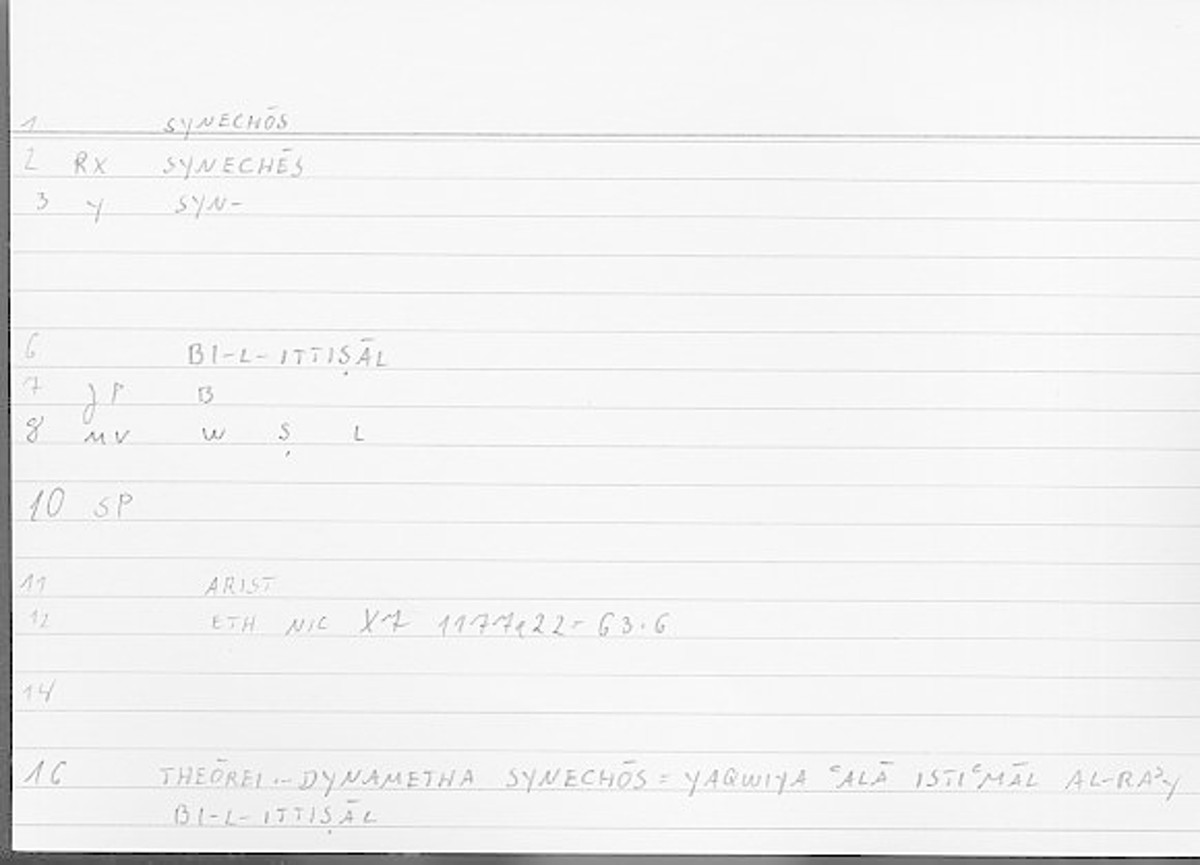 1 SYNECHŌS
2 RX SYNECHĒS
3 Y SYN-
6 BI-L-ITTIṢĀL
7 JP B
8 MV W Ṣ L
10 SP
11 ARIST
12 ETH NIC X7 1177a22= 63.6
14
16 THEŌREI.. DYNAMETHA SYNECHŌS = YAQWIYA ʿALĀ ISTIʿMĀL AL-RAʾY
BI-L-ITTIṢĀL